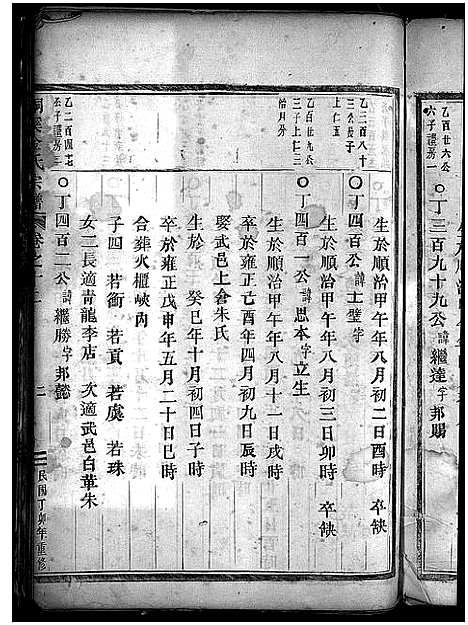 乙百廿六公
六子禮房一
〇丁三百九十九公諱繼達字邦賜
生於順治甲午年八月初二日酉時 卒缺
乙三百八十
三公長子
上仁五
〇丁四百公諱士璧字
生於順治甲午年八月初三日卯時 卒缺
乙百廿九公
三子上仁三
怡月分
〇丁四百一公諱思本字立生
生於順治甲午年八月十一日戌時
卒於雍正己酉年四月初九日辰時
娶武邑上倉朱氏
生於 癸巳年十月初四日子時
卒於雍正戊申年五月二十日巳時
合葬火櫃峽內
子四 若衡 若貢 若虞 若珠
女二長適青龍李店 次適武邑白革朱
乙二百四七
公子禮房三
〇丁四百二公諱繼勝字邦懿
氏宗譜 卷之十二 二 民國丁卯年重修